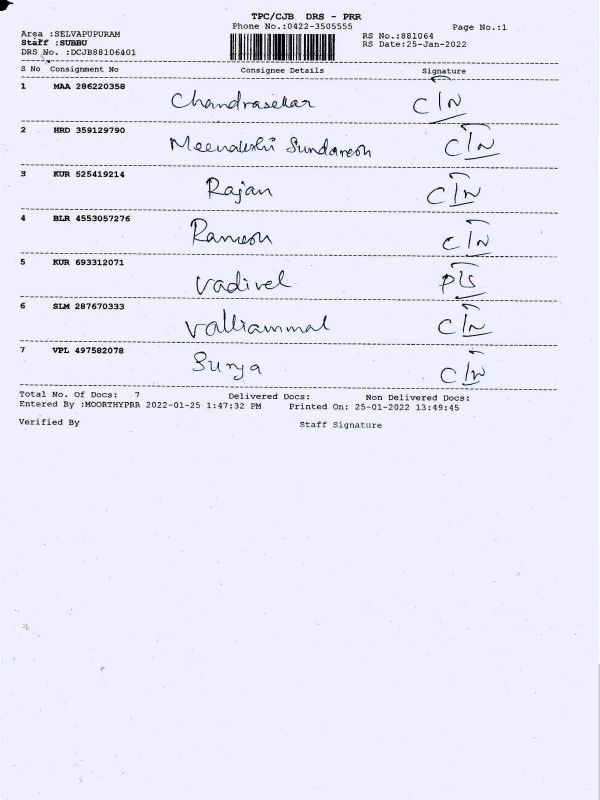 TPC/CJB DRS - PRR
Phone No.:0422-3505555 Page No.:1
Area :SELVAPUPURAM RS No.:881064
Staff :SUBBU RS Date:25-Jan-2022
DRS No. :DCJB88106401
S No Consignment No Consignee Details Signature
1 MAA 286220358 Chandrasekar C/N
2 HRD 359129790 Meenakshi Sundaresh C/N
3 KUR 525419214 Rajan C/N
4 BLR 4553057276 Ramesh C/N
5 KUR 693312071 Vadivel
6 SLM 287670333 Valliammal C/N
7 VPL 497582078 Surya C/N
Total No. Of Docs: 7 Delivered Docs: Non Delivered Docs:
Entered By :MOORTHYPRR 2022-01-25 1:47:32 PM Printed On: 25-01-2022 13:49:45
Verified By Staff Signature